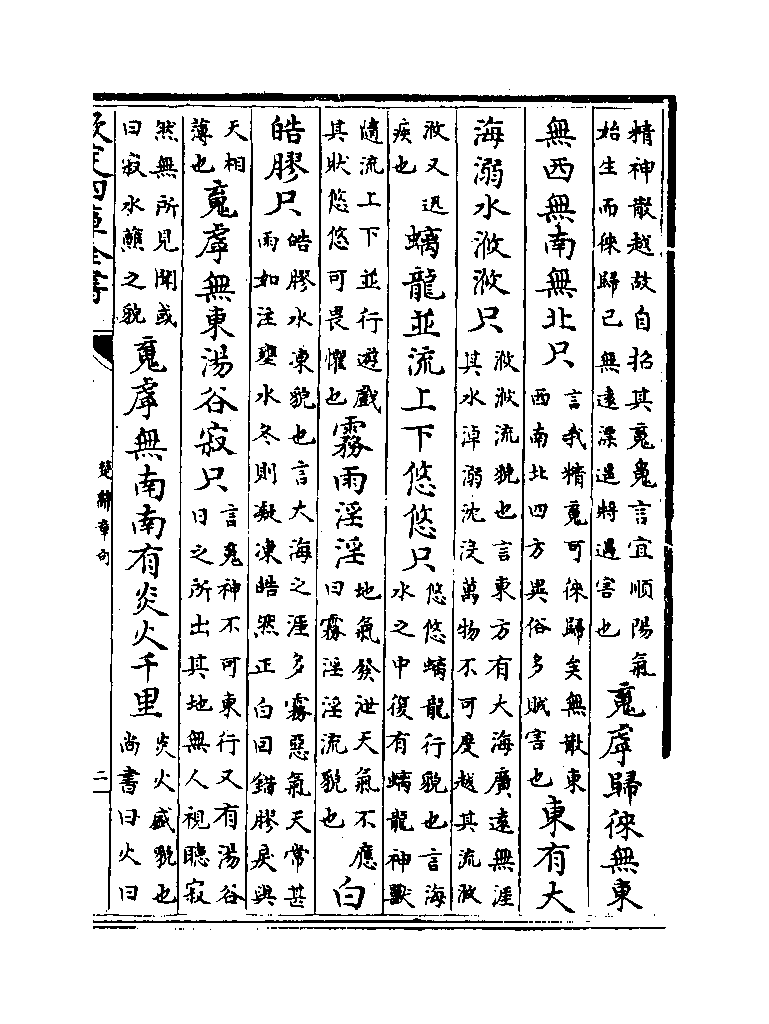 精神散越故自招其䰟䰟言宜順陽氣
始生而倈歸己無逺漂遥將遇害也
䰟虖歸倈無東
無西無南無北只
言我精䰟可倈歸矣無散東
西南北四方異俗多賊害也
東有大
海溺水浟浟只
浟浟流貌也言東方有大海廣逺無涯
其水淖溺沈没萬物不可度越其流浟
浟又迅
疾也
螭龍並流上下悠悠只
悠悠螭龍行貌也言海
水之中復有螭龍神獸
隨流上下並行遊戲
其狀悠悠可畏懼也
霧雨淫淫
地氣發泄天氣不應
曰霧淫淫流貌也
白
皓膠只
皓膠水凍貌也言大海之涯多霧惡氣天常甚
雨如注壅水冬則凝凍皓然正白囘錯膠戾與
天相
薄也
䰟虖無東湯谷寂只
言䰟神不可東行又有湯谷
日之所出其地無人視聽寂
然無所見聞或
曰寂水蘸之貌
䰟虖無南南有炎火千里
炎火盛貌也
尚書曰火曰
欽定四庫全書
楚辭章句
二